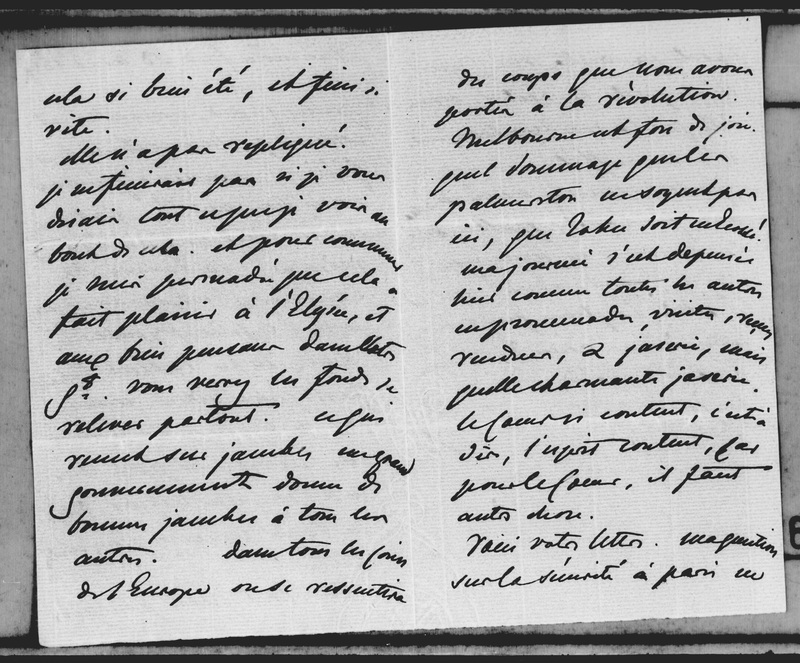 cela si bien été, et fini si
vite.
Elle n'a pas repliqué.
je n'finirais par si je vous
disais tout ce que je vois au
bout de cela. et pour commencer
je suis persuadée que cela a
fait plaisir à l'Elysée, et
aux bien pensans dans l'autre
vous verrez les fonds se
relever partout. ce qui
remet sur jambes un grand
gouvernement donne de
bonnes jambes à tous les
autres. dans tous les coins
de l'Europe on se ressentira
du coups que nous avons
portés à la révolution.
Melbourne est fou de joie.
quel dommage que les
palmerston ne soyent pas
ici, que
ma journée s'est depensée
hier comme toutes les autres
en promenades, visites,
vendues, & jaserie, mais
quelle charmante jaserie.
le Coeur si content, c'est à
dire, l'esprit content, car
pour le Coeur, il faut
autre chose.
Voici votre lettre. ma question
sur la sécurité à paris en